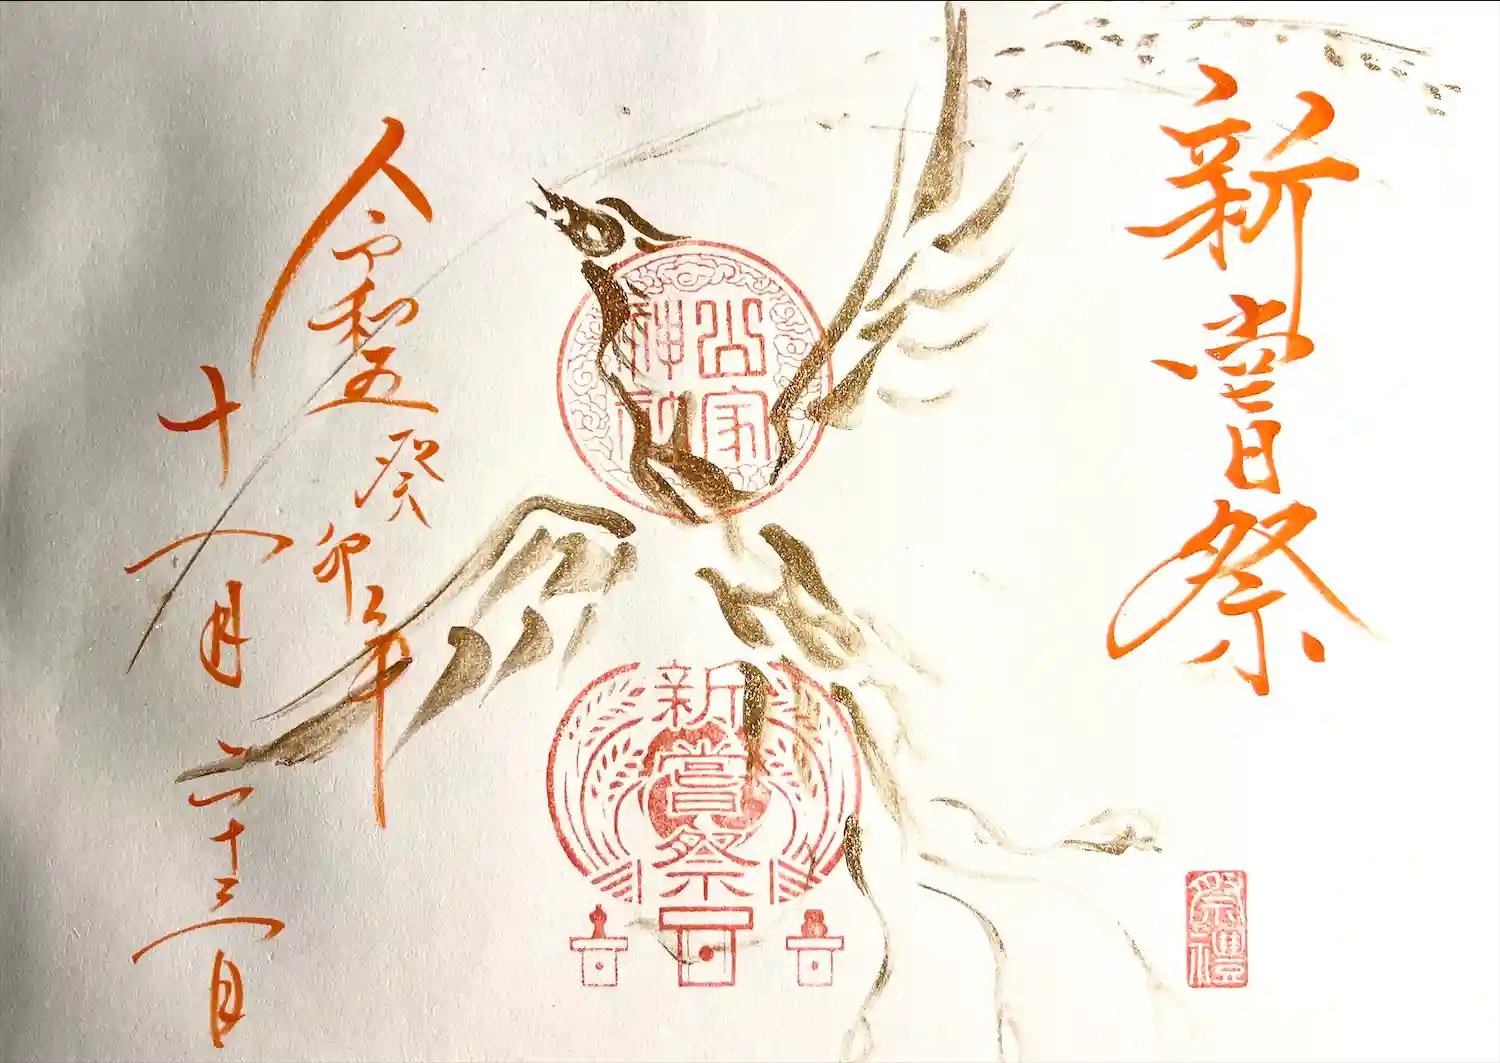 新嘗祭
令和五癸卯年
十一月二十三日
公家
神社
新嘗祭
祭禮